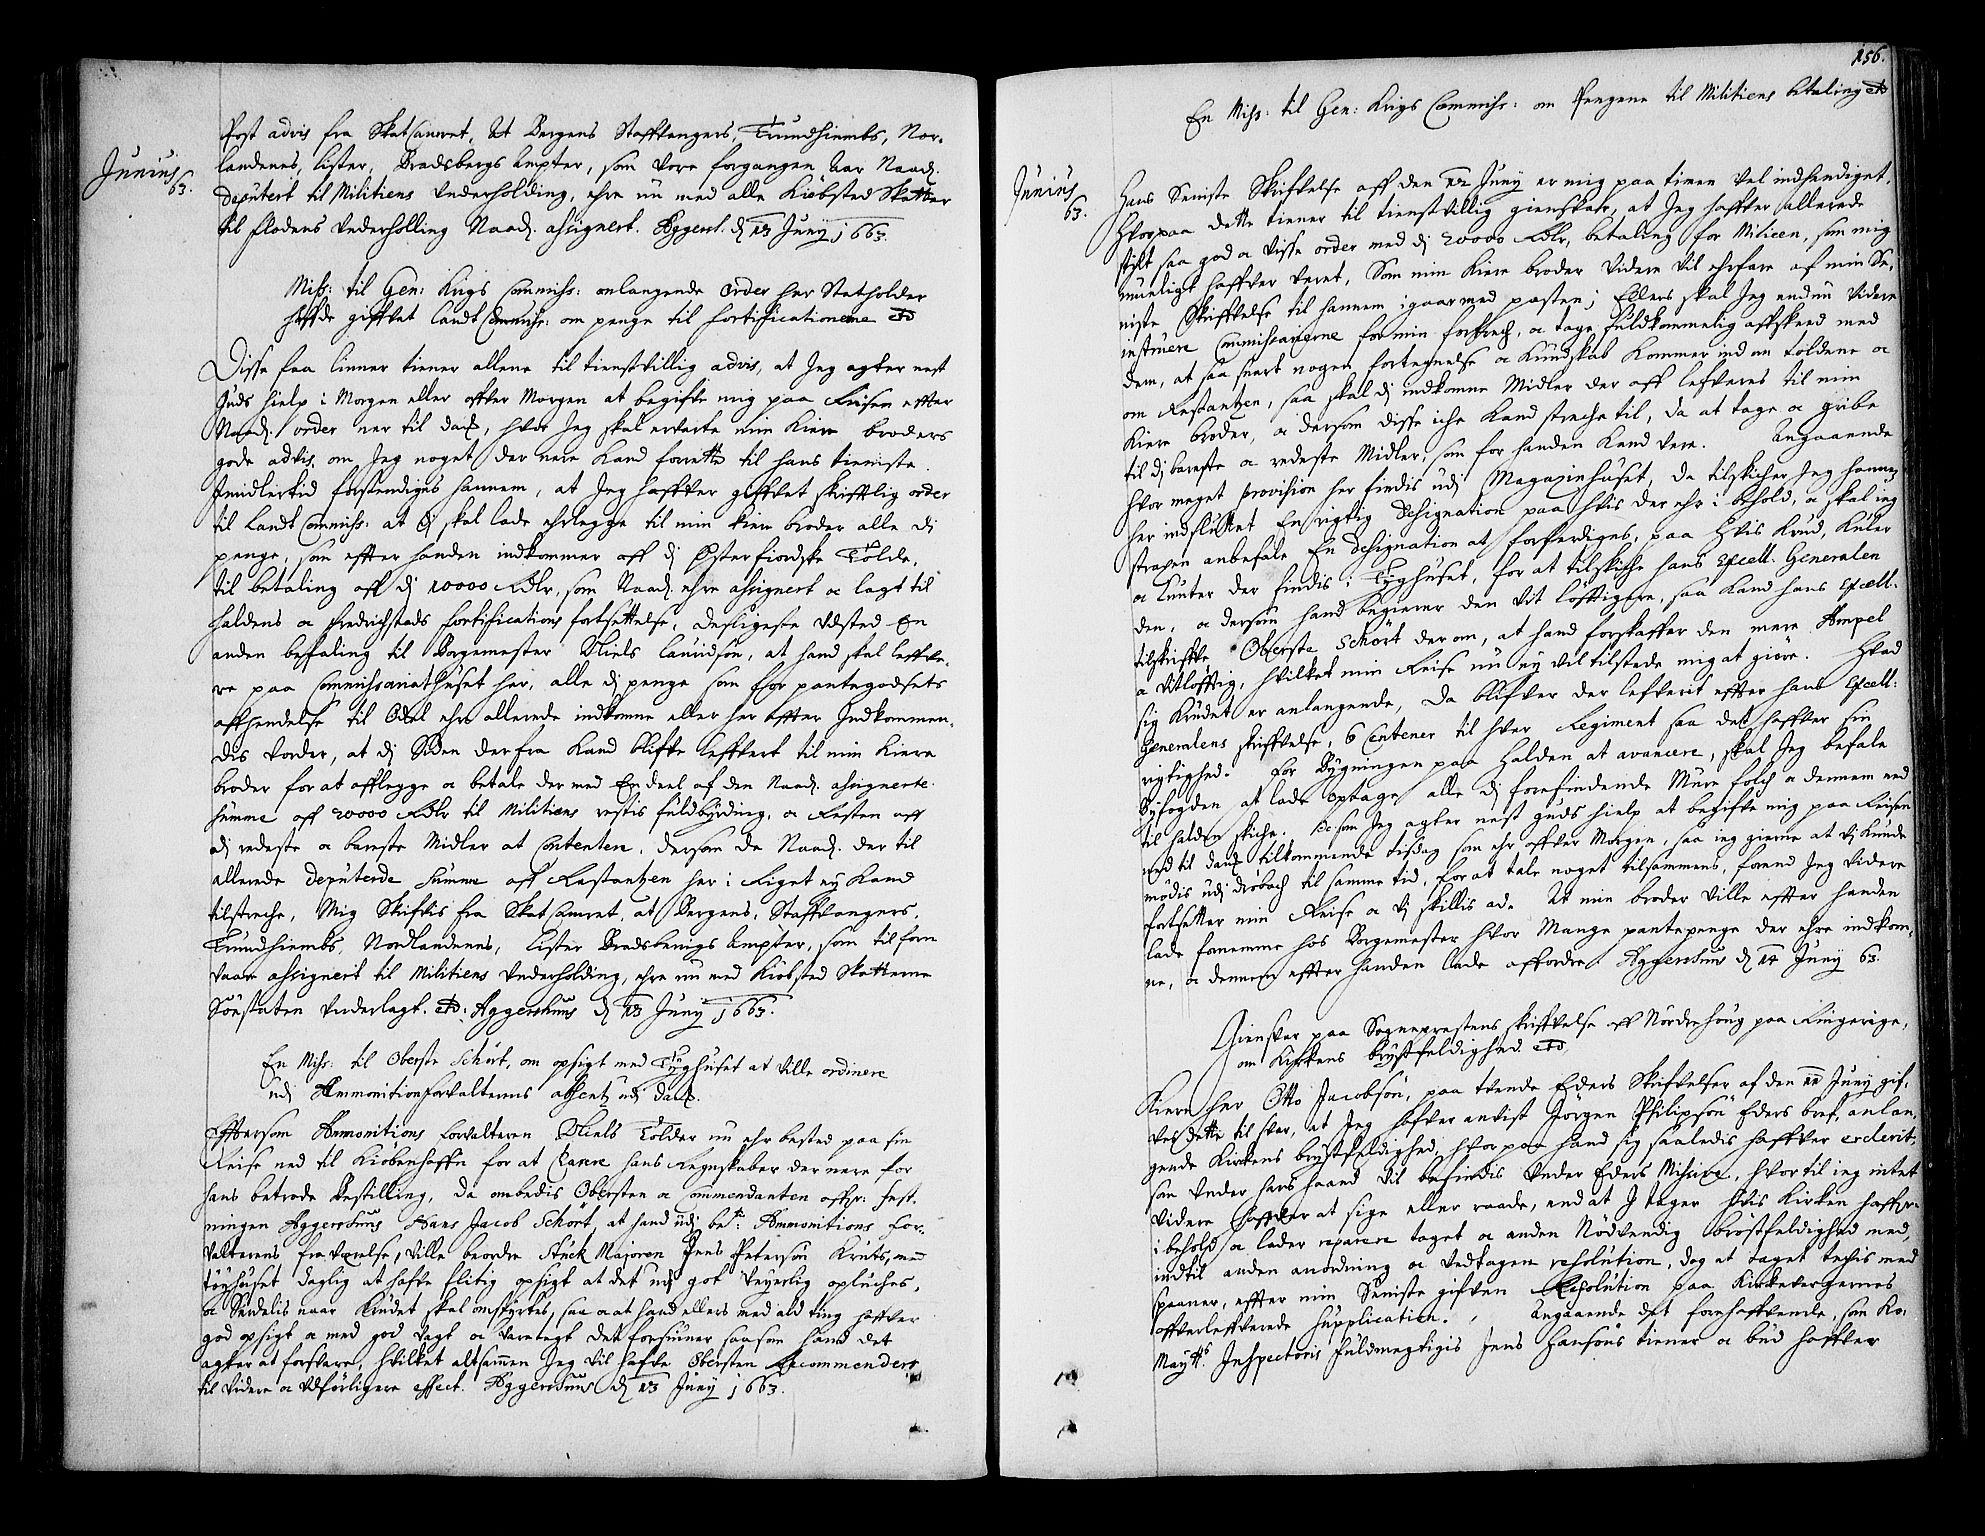 Post advis fra Skatcamret, At Bergens Staffvangers, Trundhiembs, Nor-
Junius
63.
landenes, Lister, Bradsbergs Ampter, som vore forgangen Aar Naad:
deputert til Militiens Underholding, ehre nu med alle Kiøbsted Skatter
til flodens Underholling Naad: assignert. Aggersh: d 13 Juny 1663.
Miss: til Gen: Krigs Commiss: anlangende Order her Statholder
haffde giffvet Landt Commiss: om penge til fortificationerne etc
Disse faa linner tiener allene til tienstvillig advis, at Jeg agter nest
Guds hielp i Morgen eller offver Morgen at begiffve mig paa Reisen effter
Naad: order ner til danm:, hvor Jeg skal ervarte min kiere broders
gode advis, om Jeg noget der nere kand forrette til hans tieniste.
Imidlertid forstendiges hannem, at Jeg haffver giffvet skrifftlig order
til Landt Commiss: at di skal lade erlegge til min kiere broder alle di
penge, som effter handen indkommer aff di Østerfiordske Tolde,
til betaling aff di 10000 Rdlr, som Naad: ehre assignert oc lagt til
haldens oc fredrichstads fortifications fortsettelse, desligeste Udsted En
anden befaling til Borgemester Niels Lauridsøn, at hand skal leffve-
re paa Commissariathuset her, alle di penge som for pantegodsets
affhendelse til Odel ehre allerede indkomne eller her effter Indkommen-
dis vorder, at di siden derfra kand bliffve leffvert til min kiere
broder for at afflegge oc betale der med En deel af den Naad: assignerte
summe aff 20000 Rdlr til Militiens restis fuldbyrding, oc Resten aff
di redeste oc bareste Midler at Contentere, dersom de Naad: der til
allerede deputerde summe aff Restantzen her i Riget ey kand
tilstreche, Mig skriffvis fra Skatcamret, at Bergens, Staffvangers,
Trundhiembs, Nordlandenes, Lister Bradsbergs Ampter, som til forn
vaar assignert til Militiens Underholding, ehre nu med Kiøbsted Skatterne
Søestaten Underlagt. etc: Aggershuus d 13 Juny 1663.
En Miss: til Oberste Schört, om opsigt med Tyghuset at ville ordinere
udi Ammonitionforvalterens absentz udi danm:
Efftersom Ammonitions forvalteren Niels Tolder nu ehr bested paa sin
Reise ned til Kiøbenhaffn for at Clarere hans Regnskaber der nere for
hans betrode Bestilling, da ombedis Obersten oc Commendanten offver fest-
ningen Aggershuus Hans Jacob Schört, at hand udi be:te Ammonitions For-
valterens fraverelse, ville beordre Stück Majoren Jens Peterson Kruts, med
tøyhuset daglig at haffve flitig opsigt at det udi got veyerlig opluches,
oc Serdelis naar krudet skal omstyrtes, saa oc at hand ellers med ald ting haffver
god opsigt oc med god vagt oc varetegt det forsiuner saa som hand det
agter at forsvare, hvilket altsammen Jeg vil haffve Obersten Recommendert
til videre oc udførligere effect. Aggershuus d 13 Juny 1663.
156.
En Miss: til Gen: Krigs Commiss: om Pengene til Militiens betaling etc
Junius
63.
Hans Seniste Skriffvelse aff den 12 Juny er mig paa timen vel indhendiget,
Hvorpaa dette tiener til tienstvillig giensvar, at Jeg haffver allerede
stilt saa god oc visse order med di 20000 Rdlr, betaling for Milicen, som mig
mueligt haffver veret, Som min kiere broder videre vil ehrfare af min Se-
niste Skriffvelse til hannem igaar med posten; Ellers skal Jeg endnu videre
instruere Commissarierne for min fortrech, oc tage fuldkommelig affskeed med
dem, at saa snart nogen fortegnelse oc kundskab kommer ind om toldene oc
om Restantzen, saa skal di indkomne Midler der aff lefveres til min
kiere broder, oc dersom disse iche kand streche til, da at tage oc gribe
til di bareste oc redeste Midler, som for handen kand vere. Angaaende
hvor meget provision her findis udi Magazinhuset, da tilskicher Jeg hannem
her indsluttet En rigtig Designation paa hvis der ehr i behold, oc skal ieg
strapen anbefale En designation at forferdiges, paa Hvis krud, kuler
oc Lunter der findis i Tyghuset, for at tilskiche hans Excell. Generalen
den, oc dersom hand begierer den vit løfftigere, saa kand hans Excell.
tilskriffve Oberste Schört der om, at hand forskaffer den mere Ampel
oc vitløfftig, hvilket min Reise nu ey vel tilstede mig at giøre. Hvad
sig krudet er anlangende, da blifver der lefverit effter hans Excell:
Generalens skriffvelse, 6 Centener til hver Regiment saa det haffver sin
rigtighed. For Bygningen paa Halden at avancere, skal Jeg befale
Byfogden at lade optage alle di forefindende Mure folch oc dennem ned
til halden skiche. Desom Jeg agter nest guds hielp at begiffve mig paa Reisen
ned til danm: tilkommende tisdag som ehr offver Morgen, saa ieg gierne at vi kunde
mødis udi drøbach til samme tid, for at tale noget tilsammens, førend Jeg videre
fortsetter min Reise oc vi skillis ad. At min broder ville effter handen
lade fornemme hos Borgemester hvor Mange pantepenge der ehre indkom-
ne, oc dennem effter handen lade affordre. Aggershuus d 14 Juny 63.
Giensvar paa Sogneprestens skriffvelse aff Nordrehoug paa Ringerige,
om Kirkens brystfeldighed. etc
Kiere her Otto Jacobsøn, paa tvende Eders Skriffvelser af den 11 Juny gif-
ves dette til svar, at Jeg hafver anvist Jørgen Philipsøn Eders bref, anlan-
gende Kirkens brystfeldighed, hvor paa hand sig saaledis haffver erclerit,
som under hans haand vil befindis under Eders Missive, hvor til ieg intet
videre haffver at sige eller raade, end at I tager hvis Kirken haffver
i behold oc lader reparere taget oc anden Nødvendig brøstfeldighed med,
indtil anden anordning oc vedtagen resolution, dog at taget techis med
spaaner, effter min Seniste gifven Resolution paa Kirkevergernes
offverleffverede supplication. Angaaende det forehaffvende, som Ko:
May:ts Inspectoris fuldmegtigis Jens Hansøns tiener oc bud haffver